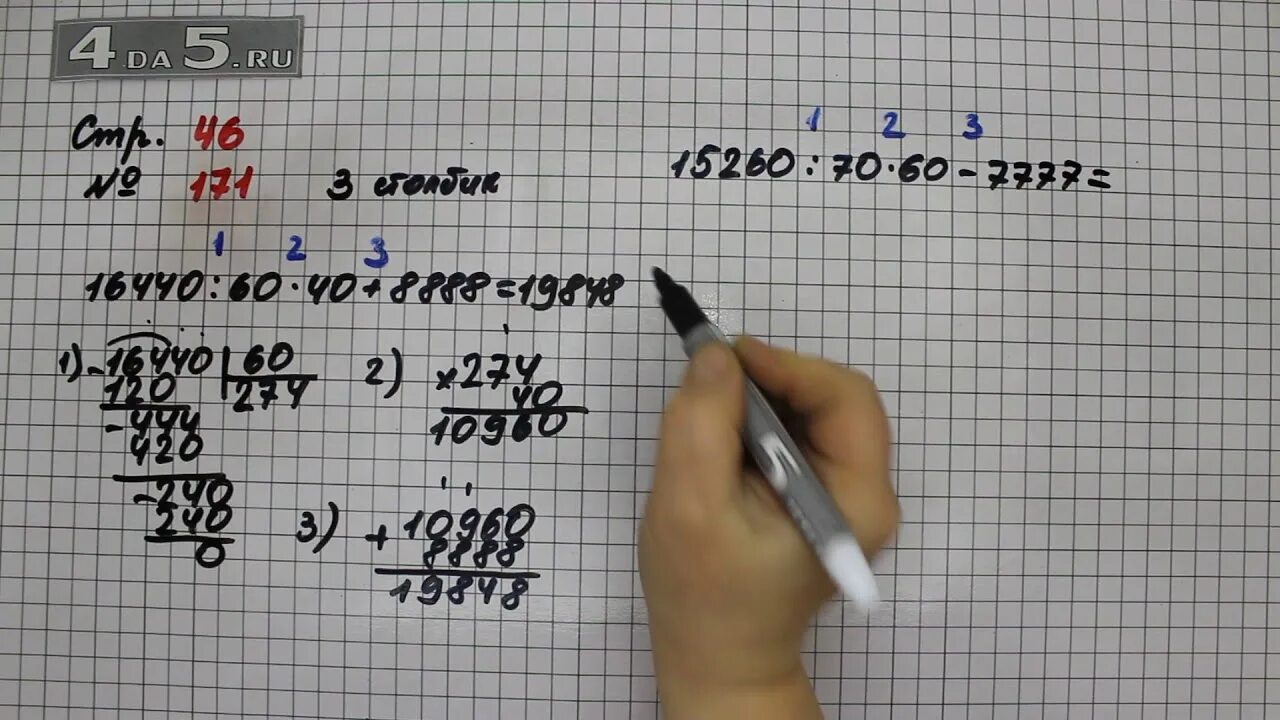 4DA5.RU
Стр. 46
№ 171 3 столбик
1 2 3
16440:60·40+8888=19848
1) -16440 60
120 274
-444
420
-240
240
0
2) ×274
40
10960
3) +10960
8888
19848
1 2 3
15260:70·60-7777=